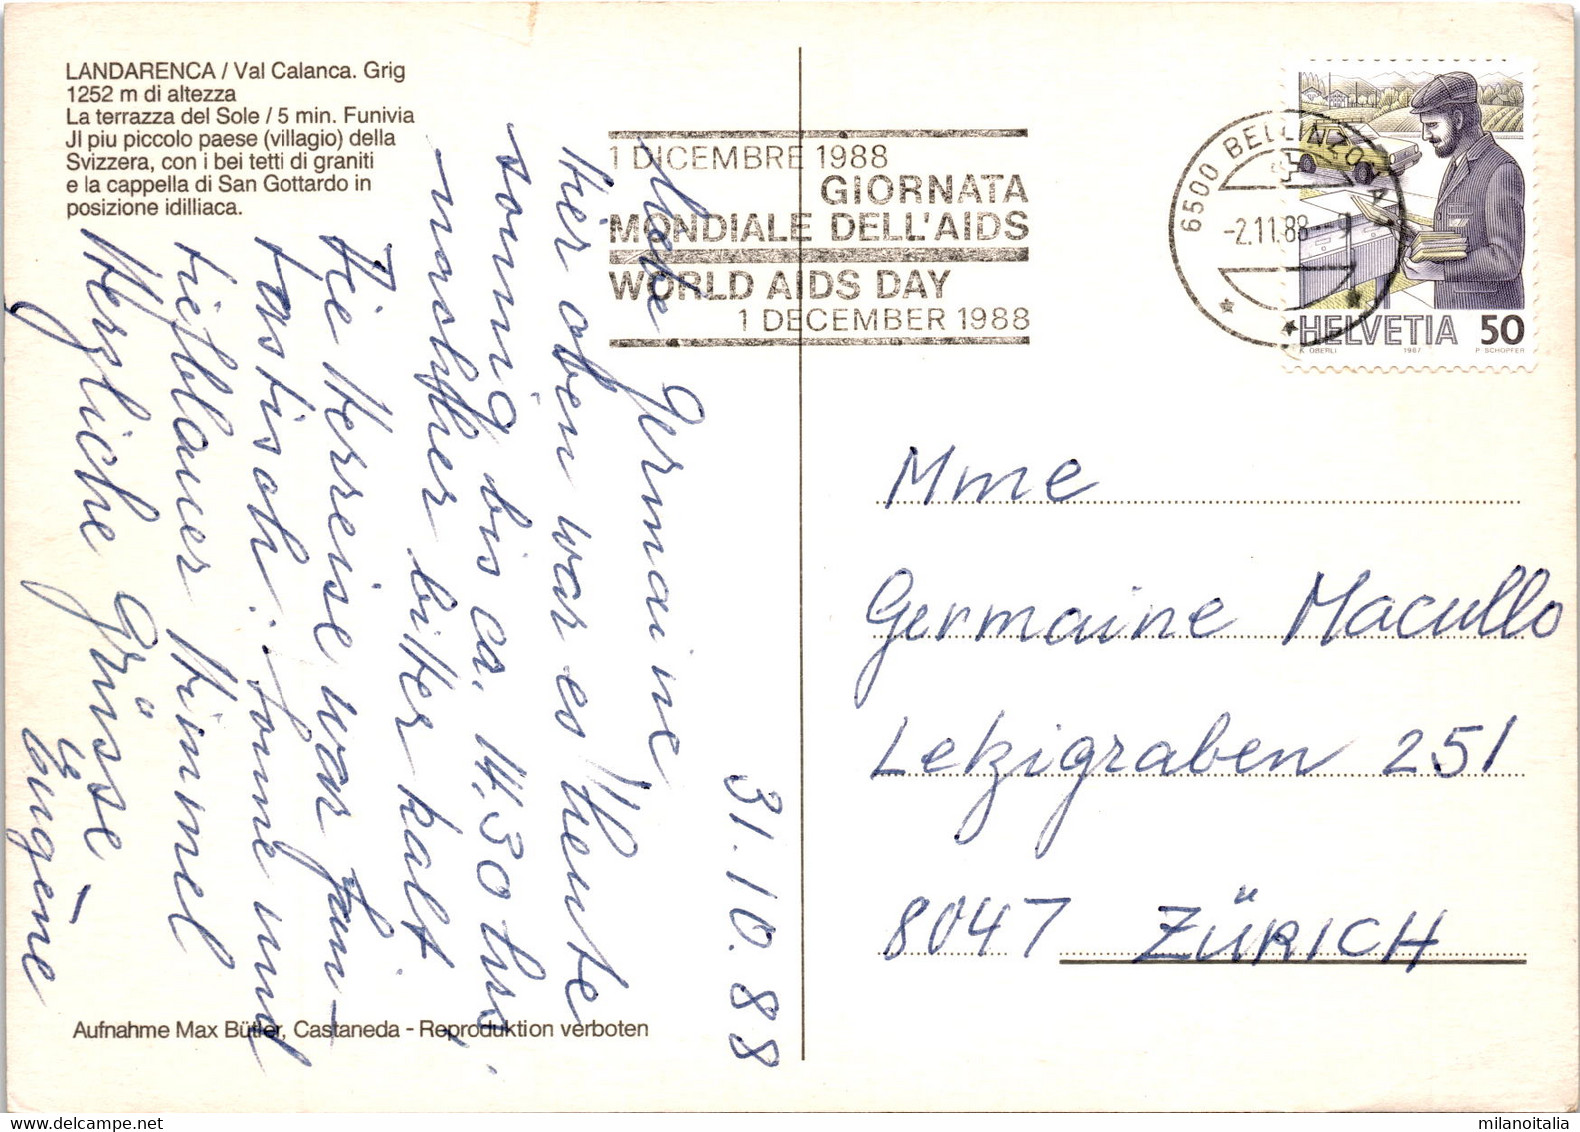 LANDARENCA / Val Calanca. Grig
1252 m di altezza
La terrazza del Sole / 5 min. Funivia
Jl piu piccolo paese (villagio) della
Svizzera, con i bei tetti di graniti
e la cappella di San Gottardo in
posizione idilliaca.
1 DICEMBRE 1988
GIORNATA
MONDIALE DELL'AIDS
WORLD AIDS DAY
1 DECEMBER 1988
6500 BELLINZONA 1
-2.11.88-
HELVETIA 50
K. OBERLI 1987 P. SCHOPFER
31.10.88
Germaine
Hier oben war es Heute
sonnig bis ca. 14,30 Uhr,
nachher bitter kalt.
Die Herreise war fan-
tastisch: Sonne und
tiefblauer Himmel
Herzliche Grüsse
Eugène
Mme
Germaine Macullo
Letzigraben 251
8047 ZÜRICH
Aufnahme Max Bütler, Castaneda - Reproduktion verboten
milanoitalia